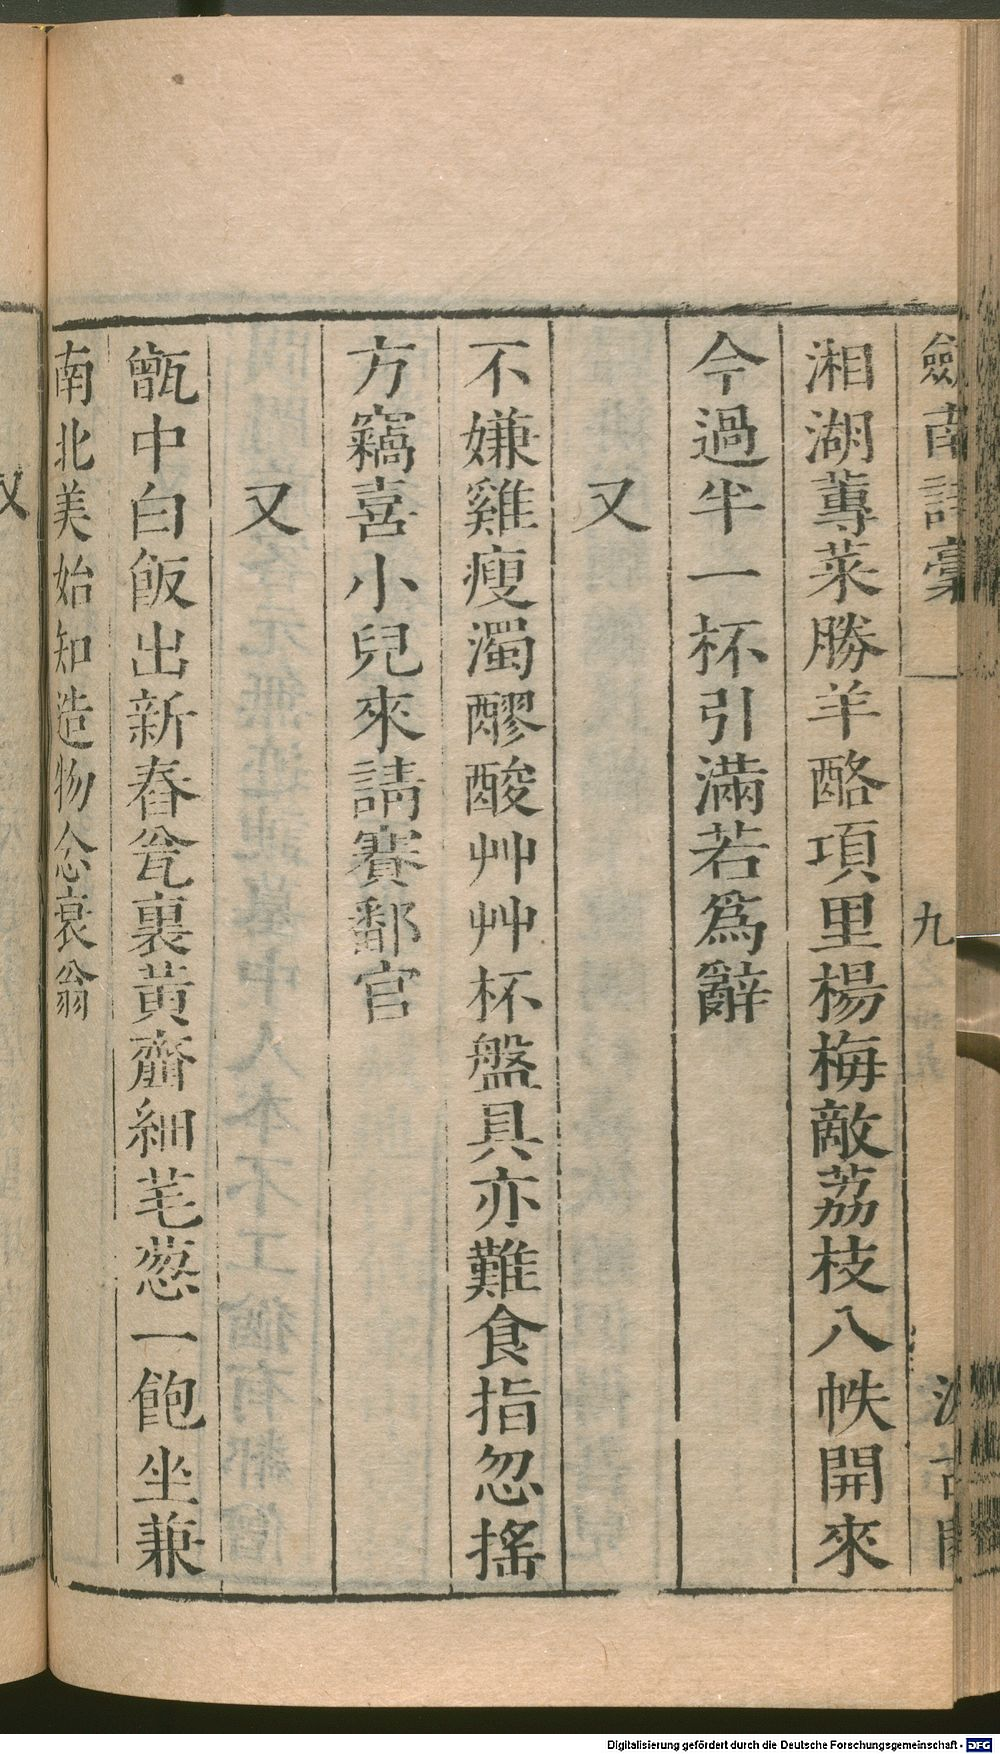 劍南詩稾
九
汲古閣
湘湖蓴菜勝羊酪項里楊梅敵荔枝八帙開來
今過半一杯引滿若爲辭
又
不嫌雞瘦濁醪酸艸艸杯盤具亦難食指忽搖
方竊喜小兒來請賽鄱官
又
甑中白飯出新舂瓮裏黃虀細芼葱一飽坐兼
南北美始知造物念衰翁
又
Digitalisierung gefördert durch die Deutsche Forschungsgemeinschaft - DFG